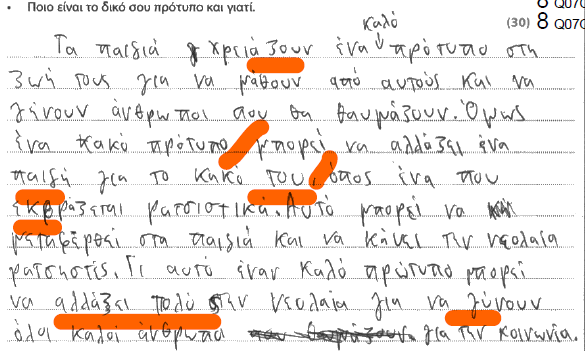 • Ποιο είναι το δικό σου πρότυπο και γιατί.
(30)
8 Q07
8 Q07
καλό
Τα παιδιά χρειάζουν ένα πρότυπο στη
ζωή τους για να μάθουν από αυτούς και να
γένουν άνθρωποι που θα θαυμάζουν. Όμως
ένα κακό πρότυπο μπορεί να αλλάξει ένα
παιδή για το κακό του, όπος ένα που
εκφράζεται ρατσιστικά. Αυτό μπορεί να
μεταφερθεί στα παιδιά και να κάνει την νεολαία
ρατσηστές. Γι αυτό έναν καλό πρώτυπο μπορεί
να αλλάξει πολύ στην νεολαία για να γύνουν
όλοι καλοί άνθρωπα για την κοινωνία.